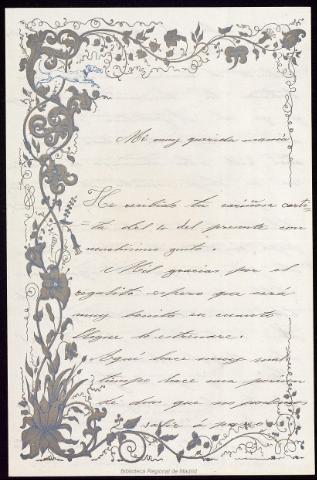 Mi muy querida mamá
He recibido tu cariñosa carti=
=ta del 4 del presente con
muchísimo gusto.
Mil gracias por el
regalito espero que será
muy bonito en cuanto
llegue lo estrenaré.
Aquí hace muy mal
tiempo hace una porción
de dias que no podemos
salir á paseo
Biblioteca Regional de Madrid